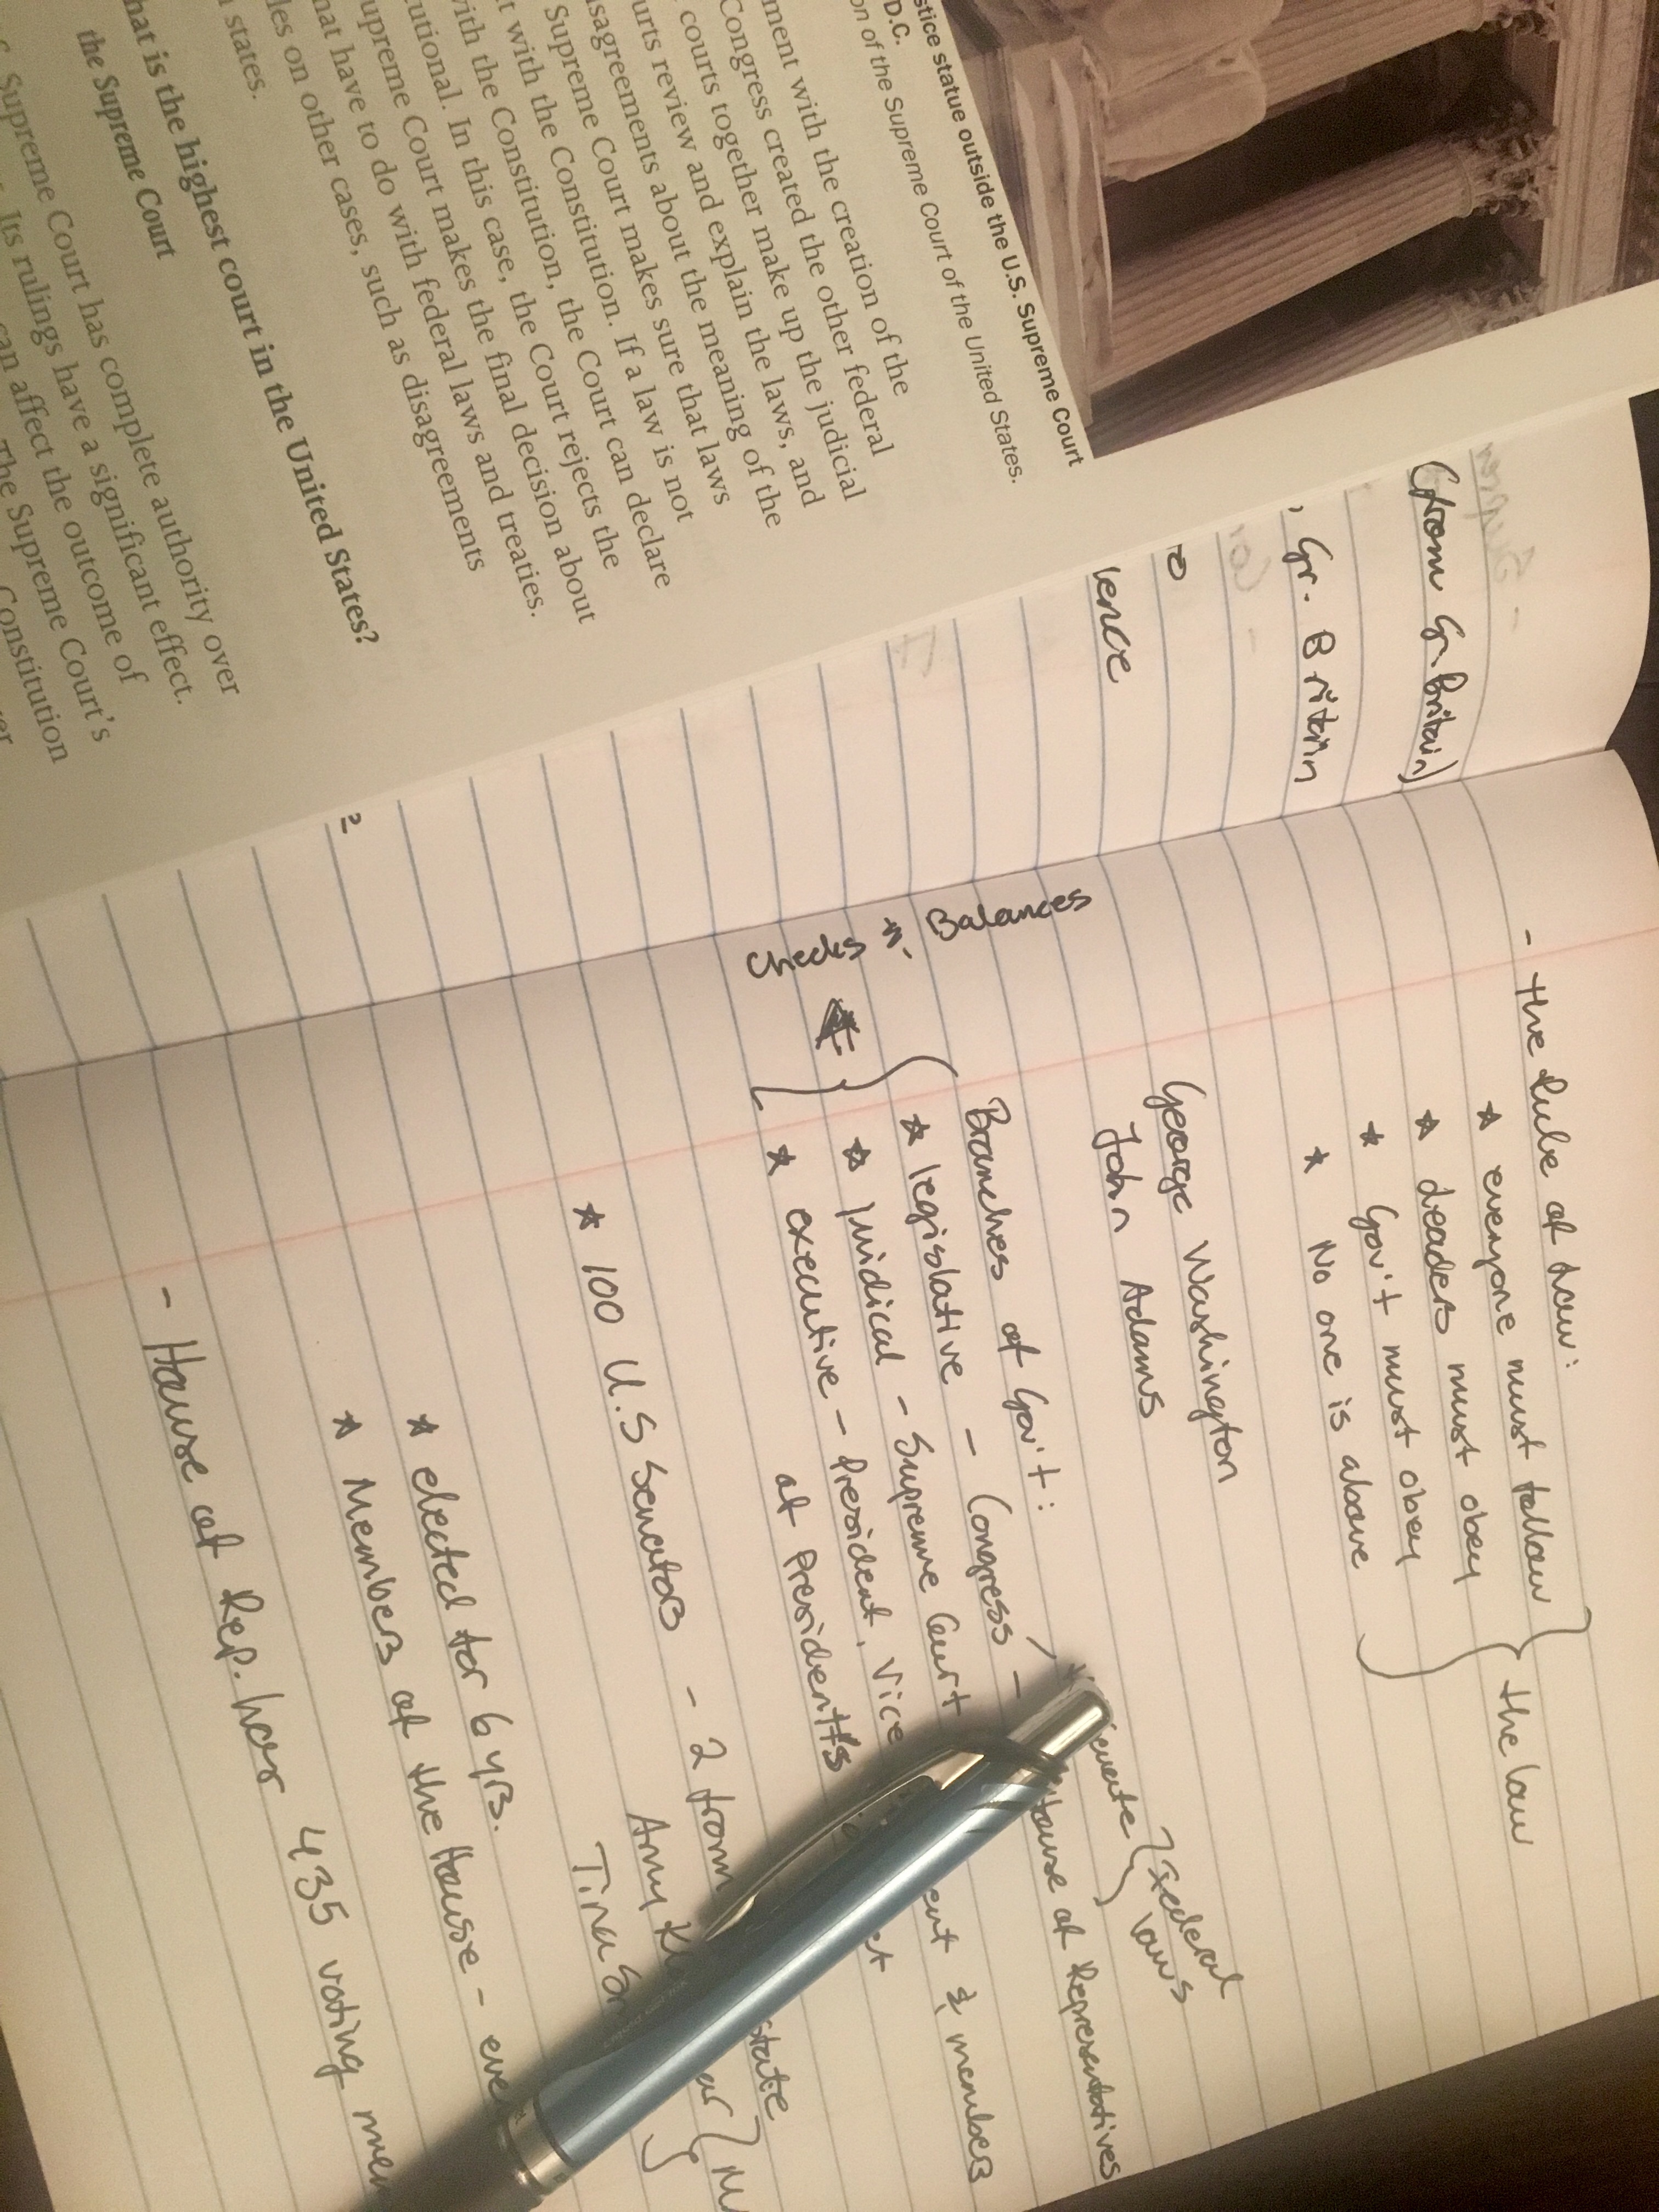 stice statue outside the U.S. Supreme Court
D.C.
on of the Supreme Court of the United States.
ment with the creation of the
Congress created the other federal
courts together make up the judicial
urts review and explain the laws, and
sagreements about the meaning of the
Supreme Court makes sure that laws
t with the Constitution. If a law is not
with the Constitution, the Court can declare
utional. In this case, the Court rejects the
upreme Court makes the final decision about
hat have to do with federal laws and treaties.
les on other cases, such as disagreements
states.
hat is the highest court in the United States?
the Supreme Court
Supreme Court has complete authority over
Its rulings have a significant effect.
can affect the outcome of
The Supreme Court's
Constitution
(from Gr. Britain)
, Gr. Britain
lence
?
- the Rule of Law:
* everyone must follow
* Leaders must obey
* Gov't must obey
* No one is above
} the law
George Washington
John Adams
Branches of Gov't:
Checks & Balances
* legislative - Congress -
House of Representatives
} Federal laws
* juidical - Supreme Court
* executive - President, Vice
ent & members
of President's
* 100 U.S Senators - 2 from
state
Amy
Tina
* elected for 6 yrs.
* Members of the House -
- House of Rep. has 435 voting